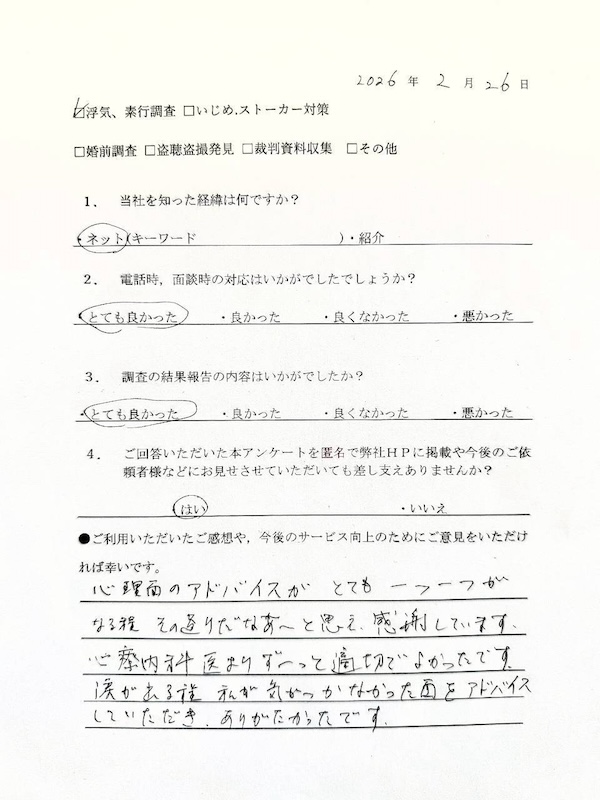 2026 年 2 月 26 日
☑浮気、素行調査 □いじめ,ストーカー対策
□婚前調査 □盗聴盗撮発見 □裁判資料収集 □その他
1． 当社を知った経緯は何ですか？
・ネット(キーワード )・紹介
2． 電話時，面談時の対応はいかがでしたでしょうか？
・とても良かった ・良かった ・良くなかった ・悪かった
3． 調査の結果報告の内容はいかがでしたか？
・とても良かった ・良かった ・良くなかった ・悪かった
4． ご回答いただいた本アンケートを匿名で弊社ＨＰに掲載や今後のご依
頼者様などにお見せさせていただいても差し支えありませんか？
・はい ・いいえ
●ご利用いただいたご感想や，今後のサービス向上のためにご意見をいただけ
れば幸いです。
心理面のアドバイスが とても 一つ一つが
なる程 その通りだなあ〜と思え、感謝しています。
心療内科医よりず〜っと適切でよかったです。
涙が出る程 私が気がつかなかった面をアドバイス
していただき、ありがたかったです。